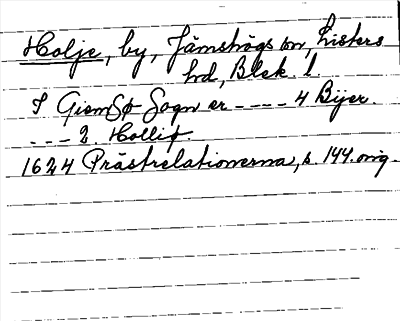 Holje, by, Jämshögs sn, Listers
hd, Blek. l.
I GiemSø Sogn er ---- 4 Bÿer.
--- 2. Holliø.
1624 Prästrelationerna, s. 144. orig.